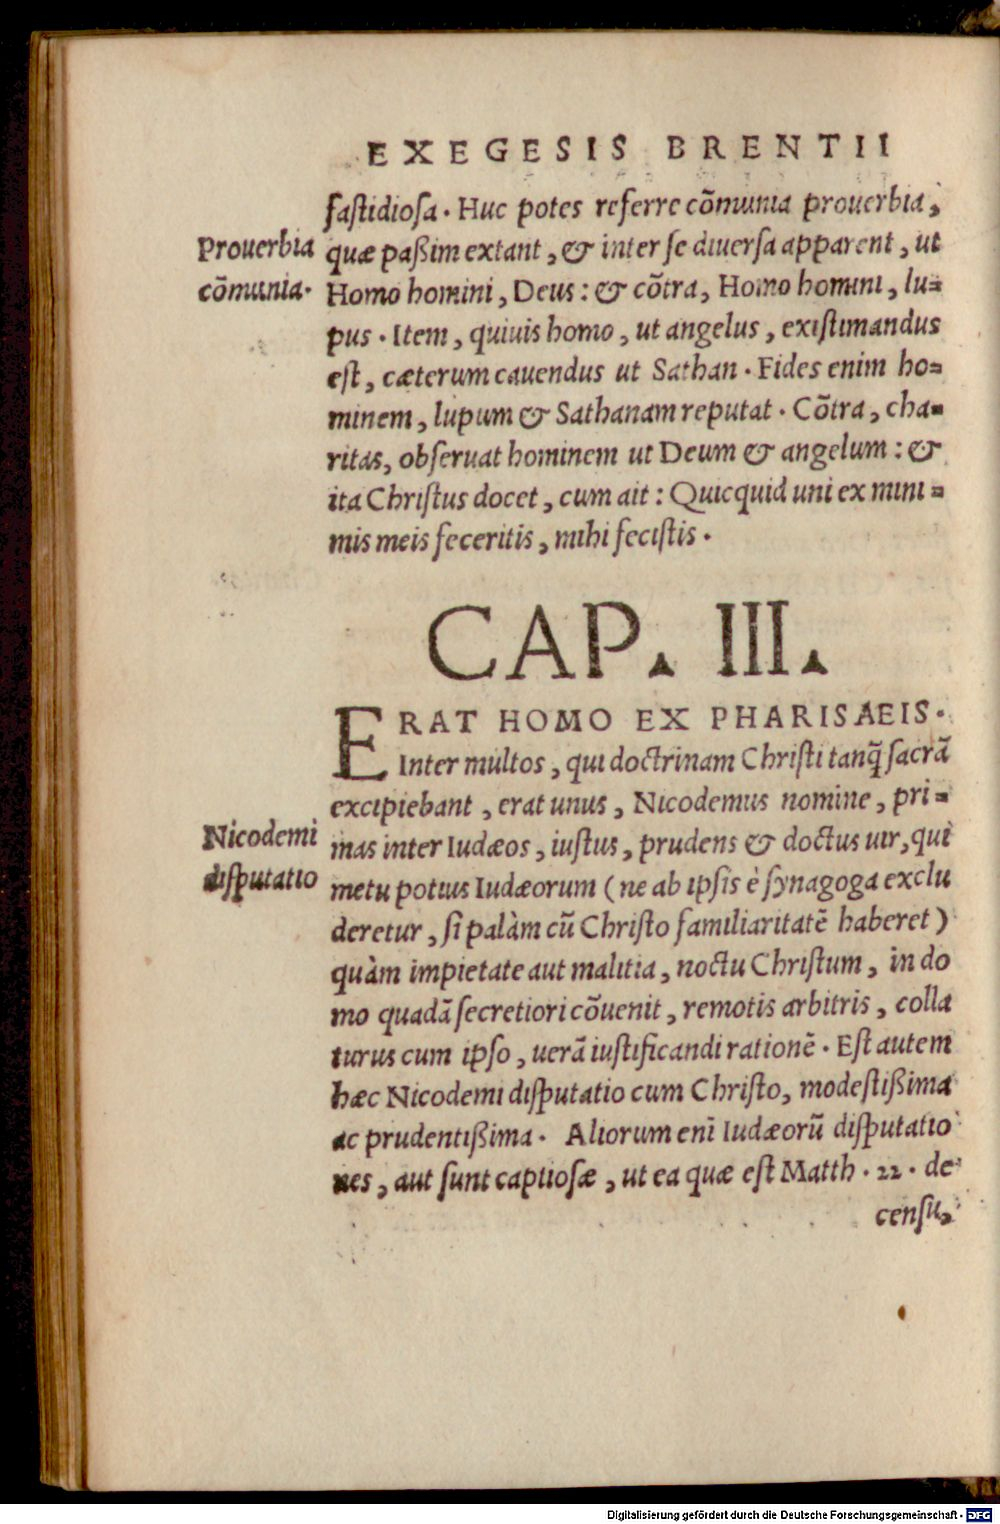 EXEGESIS BRENTII
fastidiosa. Huc potes referre cõmunia prouerbia,
Prouerbia
cõmunia.
quæ paßim extant, & inter se diuersa apparent, ut
Homo homini, Deus: & cõtra, Homo homini, lu=
pus. Item, quiuis homo, ut angelus, existimandus
est, cæterum cauendus ut Sathan. Fides enim ho=
minem, lupum & Sathanam reputat. Cõtra, cha=
ritas, obseruat hominem ut Deum & angelum: &
ita Christus docet, cum ait: Quicquid uni ex mini=
mis meis feceritis, mihi fecistis.
CAP. III.
ERAT HOMO EX PHARISAEIS.
Inter multos, qui doctrinam Christi tanq̃ sacrã
excipiebant, erat unus, Nicodemus nomine, pri=
Nicodemi
disputatio
mas inter Iudæos, iustus, prudens & doctus uir, qui
metu potius Iudæorum (ne ab ipsis è synagoga exclu
deretur, si palàm cũ Christo familiaritatẽ haberet)
quàm impietate aut malitia, noctu Christum, in do
mo quadã secretiori cõuenit, remotis arbitris, colla
turus cum ipso, uerã iustificandi rationẽ. Est autem
hæc Nicodemi disputatio cum Christo, modestißima
ac prudentißima. Aliorum enĩ Iudæorũ disputatio
nes, aut sunt captiosæ, ut ea quæ est Matth. 22. de
censu,
Digitalisierung gefördert durch die Deutsche Forschungsgemeinschaft - DFG